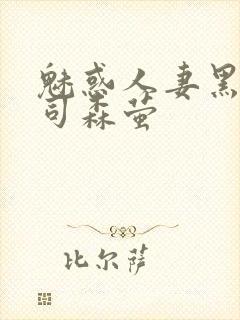 魅惑人妻黑
司森萤
比尔萨